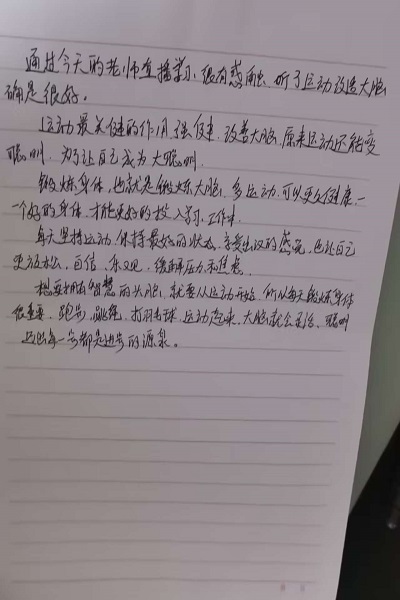 通过今天的老师直播学习，很有感触，听了运动改造大脑
确是很好。
运动最关键的作用强健、改善大脑，原来运动还能变
聪明，为了让自己成为大聪明，
锻炼身体，也就是锻炼大脑，多运动，可以更加健康，一
个好的身体，才能更好的投入学习、工作中
每天坚持运动，保持最好的状态，享受出汗的感觉，也让自己
更加放松、自信、乐观，缓解压力和焦虑。
想要拥有智慧的头脑，就要从运动开始，所以每天锻炼身体
很重要，跑步，跳绳，打羽毛球，运动起来，大脑就会灵活、聪明
每一步都是进步的源泉。